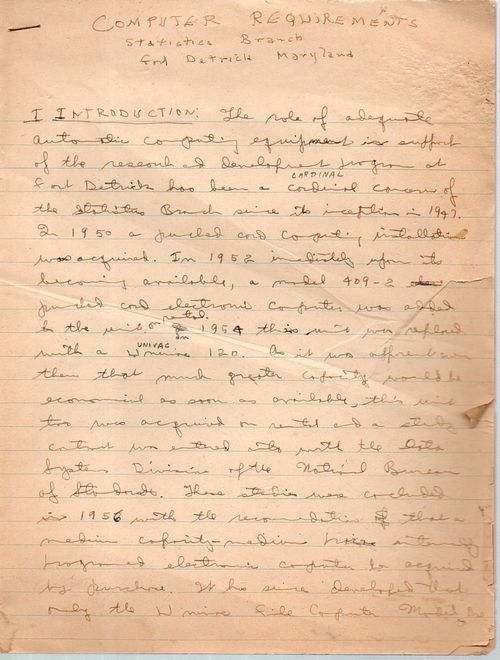 COMPUTER REQUIREMENTS
Statistics Branch
Fort Detrick Maryland
I INTRODUCTION: The role of adequate
automatic computing equipment in support
of the research and development program at
Fort Detrick has been a cordinal concern of
CARDINAL
the Statistics Branch since its inception in 1947.
In 1950 a punched card computing installation
was acquired. In 1952 imediately upon its
becoming available, a model 409-2
punched card electronic computer was added
to the unit on rental. In 1954 this unit was replaced
with a Univac 120. As it was apparent even
UNIVAC
then that much greater capacity would be
economical as soon as available, this unit
too was acquired on rental and a study
contract was entered into with the Data
Systems Division of the National Bureau
of Standards. These studies were concluded
in 1956 with the recomendation that a
medium capacity-medium internally
programed electronic computer be acquired
by purchase. It has since developed that
only the Univac File Computer Model